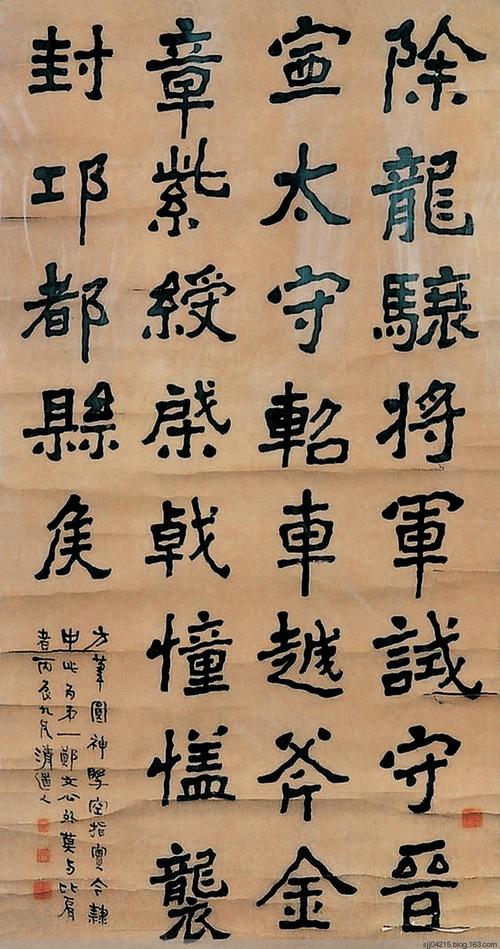 除龍驤将軍試守晉
寧太守軺車越斧金
章紫綬棨戟憧蓋襲
封邛都縣侯
方筆圓神擘空指實今隸
中此为弟一鄭文公外莫与比肩
者丙辰九月清道人
sjj04215.blog.163.com